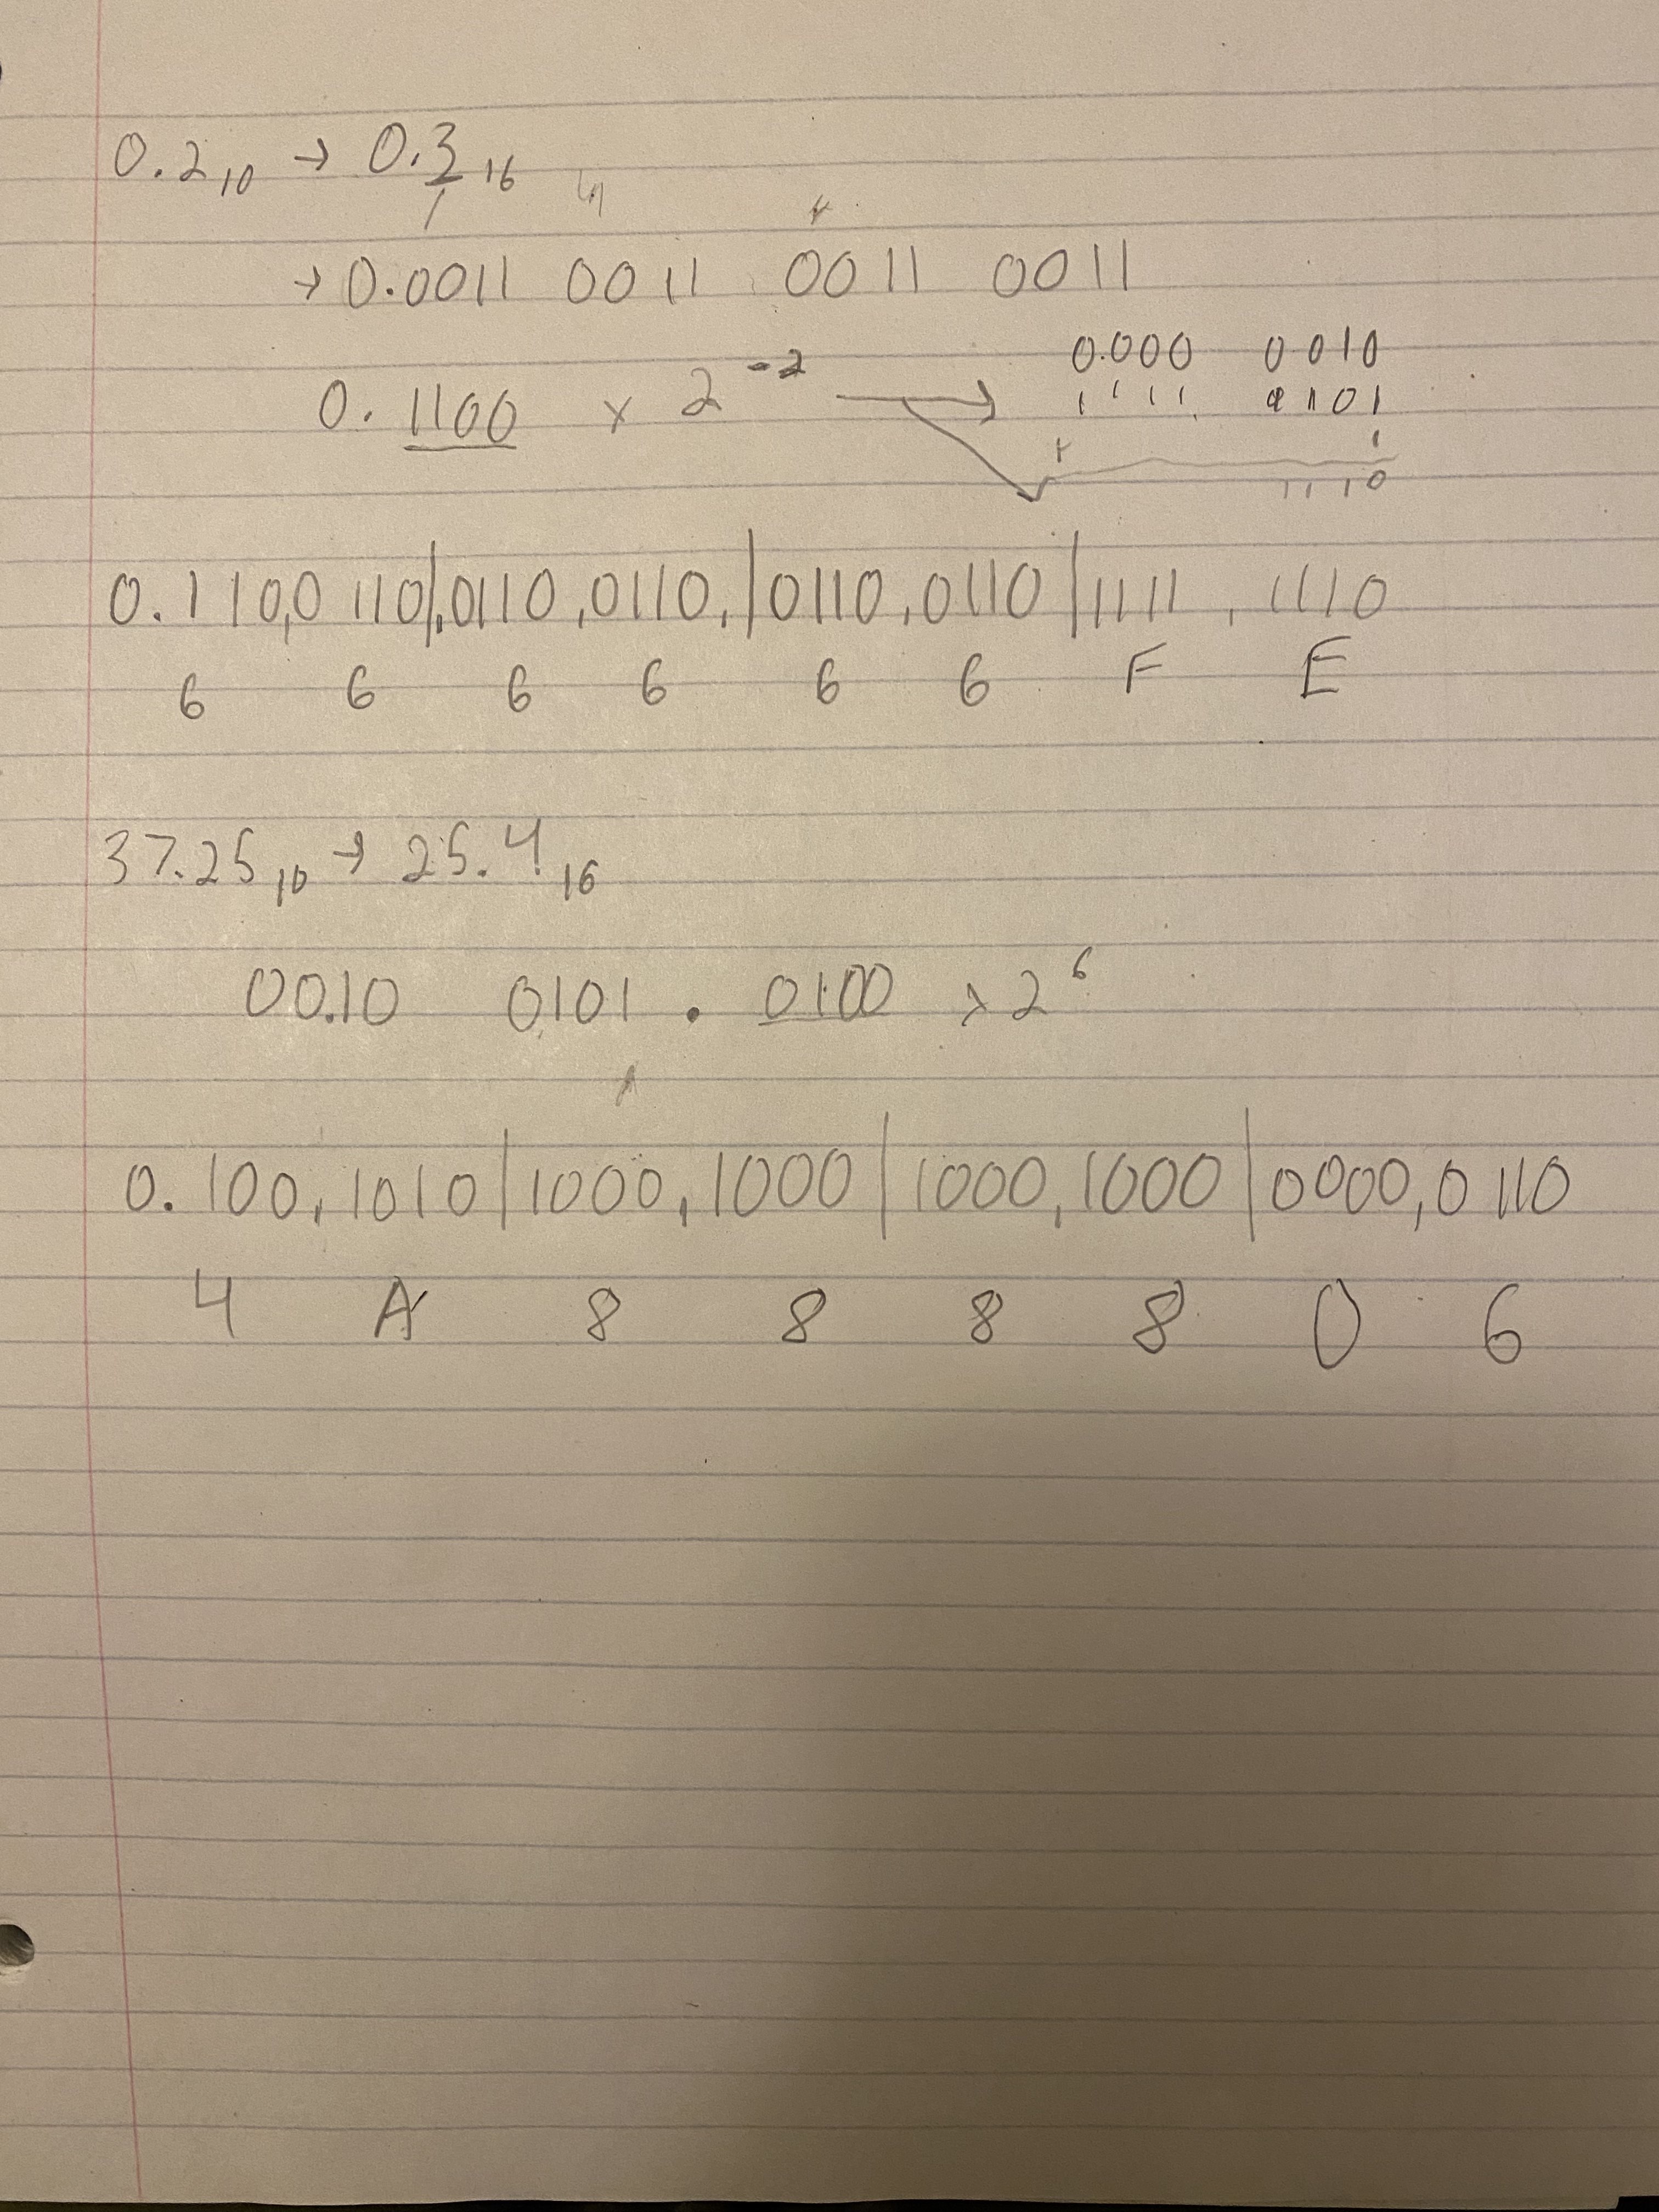 0.2₁₀ → 0.3₁₆
→ 0.0011 0011 0011 0011
0.000 0010
0.1100 x 2⁻² → 1111 1101
+ 1
1110
0.110,0110|,0110,0110,|0110,0110|1111,1110
6 6 6 6 6 6 F E
37.25₁₀ → 25.4₁₆
00.10 0101 . 0100 x 2⁶
0.100,1010|1000,1000|1000,1000|0000,0110
4 A 8 8 8 8 0 6